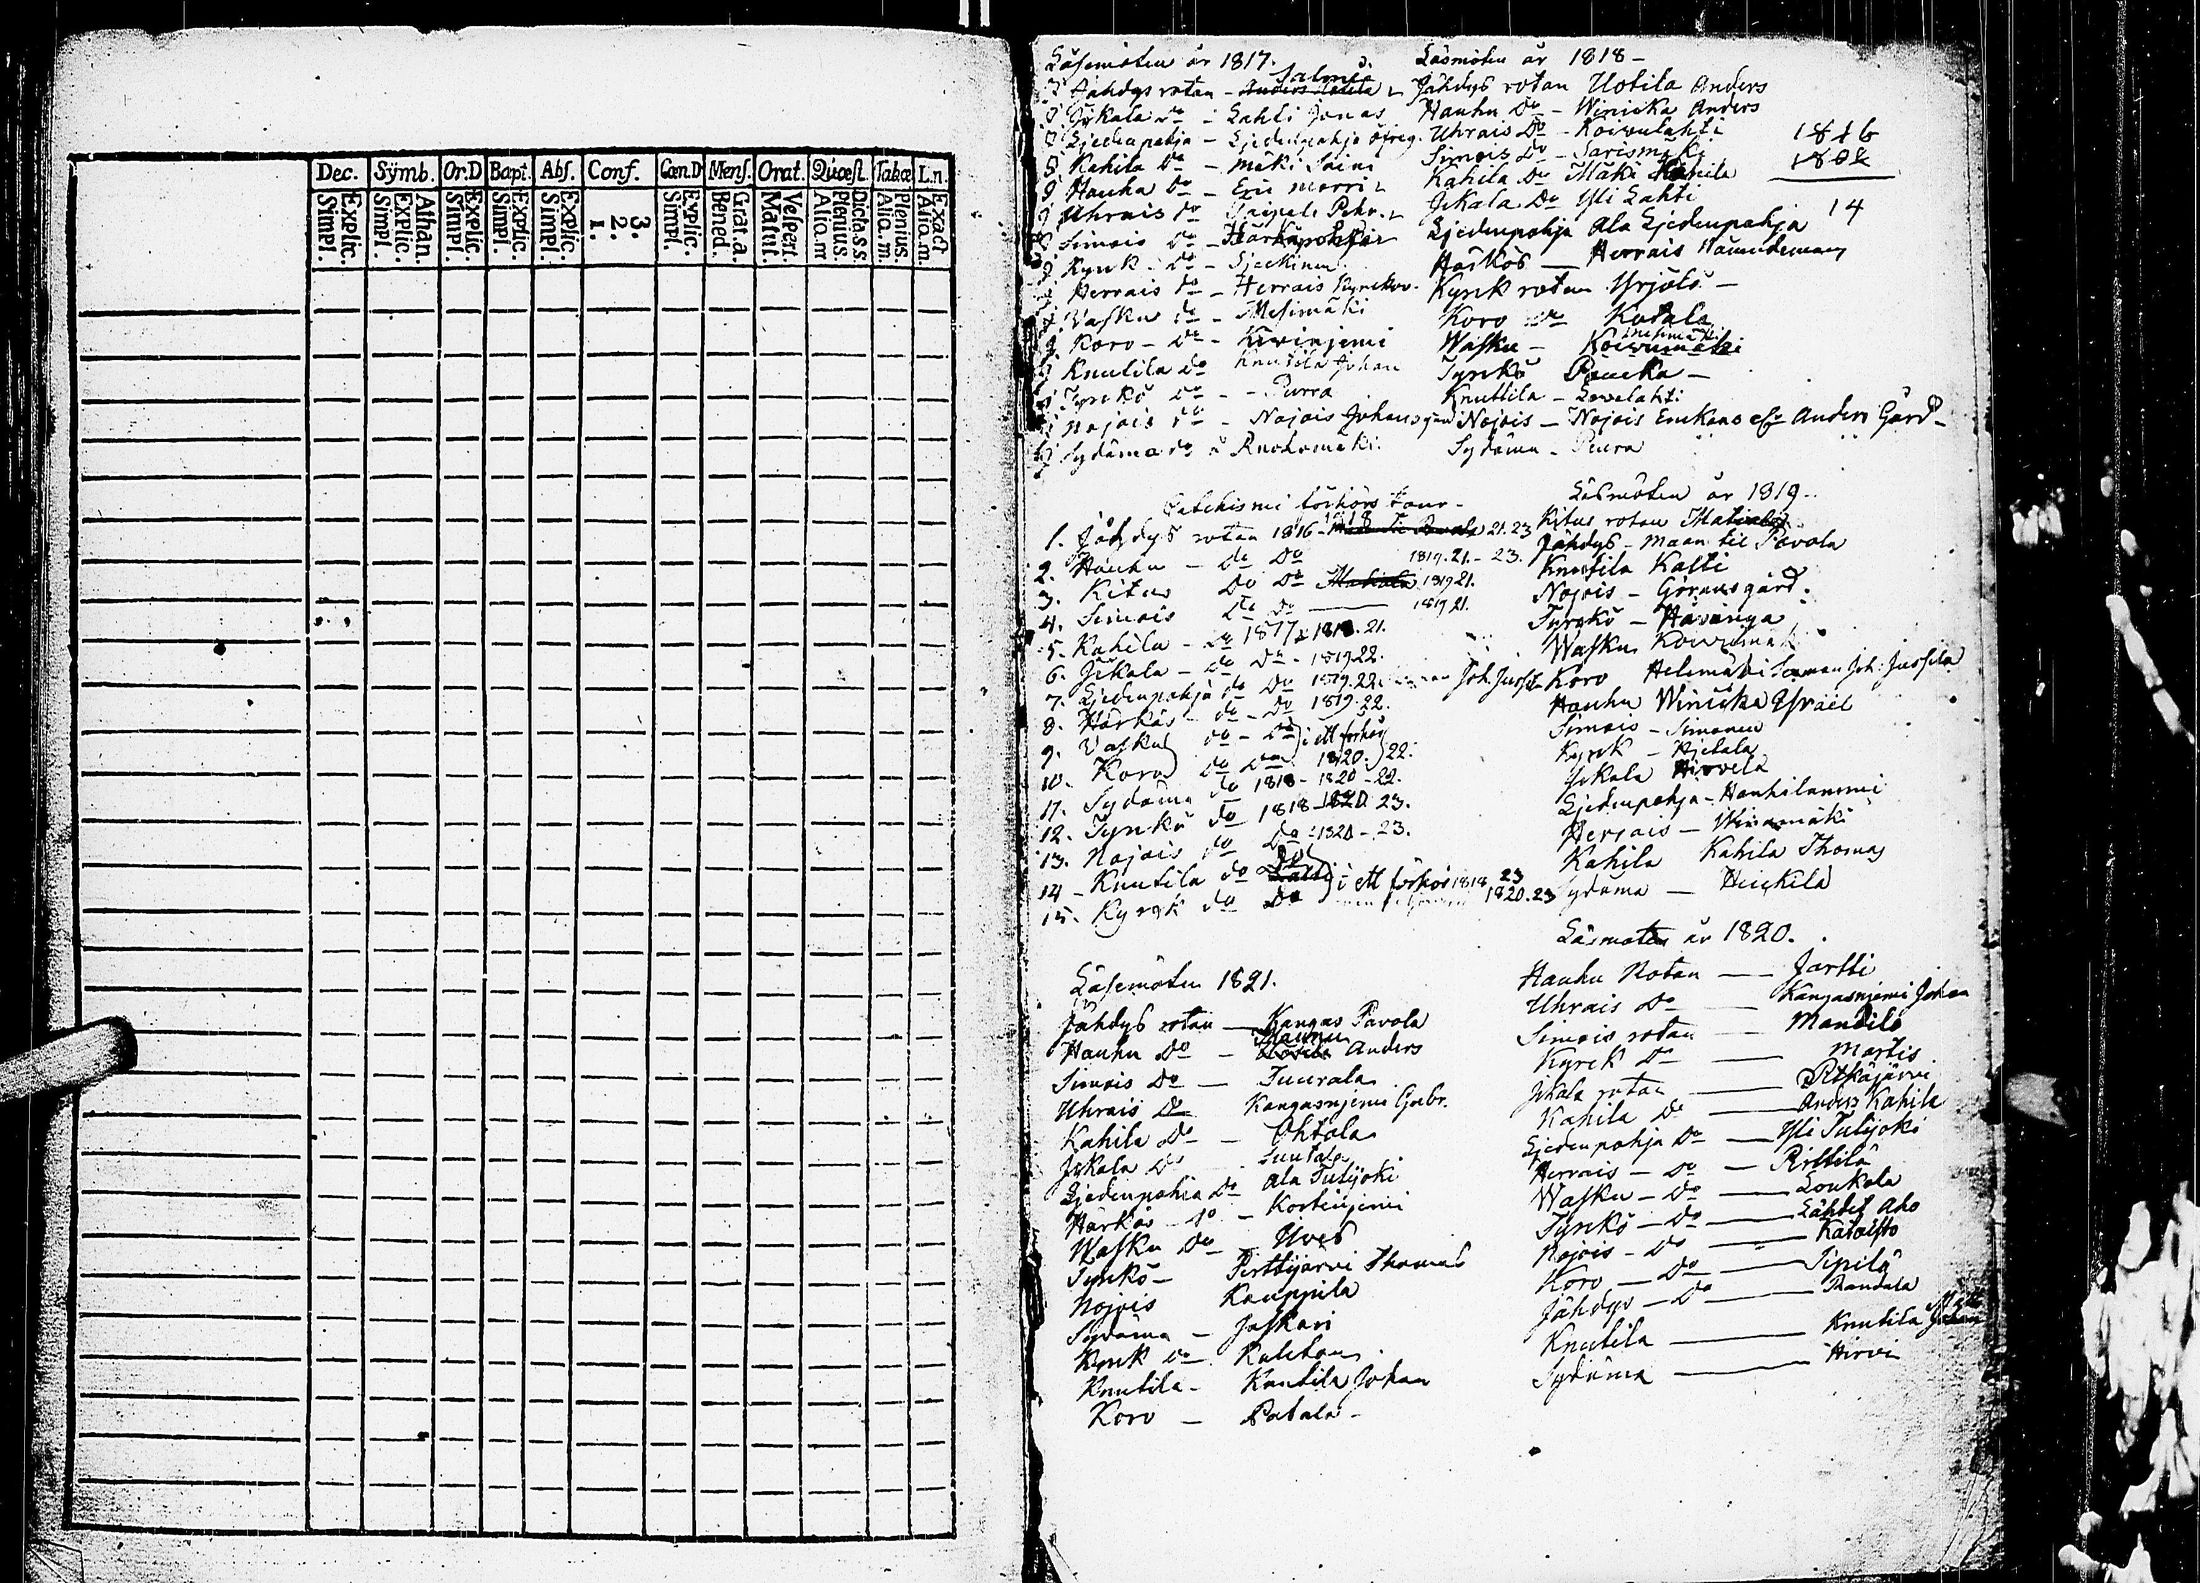 Dec. Sÿmb. Or.D Bapt. Abs. Conf. Cœn.D Mens. Orat. Quæst. Tabæ L.n.
Explic. Simpl.
Athan. Explic. Simpl.
Explic. Simpl.
Explic. Simpl.
Explic. Simpl.
3. 2. 1.
Explic. Simpl.
Grat.a. Bened.
Vespert. Matut.
Dicta S.S. Plenius. Aliq.m
Plenius. Aliq.m.
Exact Aliq.m.
Läsemöten år 1817.
Jähdys rotan - Anders Uotila
Jykala do - Lahti Jonas
Sjedenpahja - Sjedenpahja öfreg.
Kahila do - Mäki
Hauhu do - Eric Morri
Uhrais do - Pehr.
Simois do - Härkäpohja
Kyrck do - Sjeckinen
Herrais do - Herrais
Vasku do - Mesimäki
Koro - do - Kivinjemi
Knutila do Knutila Johan
Tyrckö do - Purra
Nojois do - Nojois Johans gård
Sydäma do Ruohomäki.
Läsmöten år 1818 -
Jähdys rotan Uotila Anders
Hauhu do - Winicka Anders
Uhrais do - Koivulahti
Simois do - Sarismäki
Kahila do Mäki Kahila
Jykala do Yli Lahti
Sjedenpahja Ala Sjedenpahja
Härkös - Herrais
Kyrck rotan Yrjölä -
Koro do Katala
Wasku - Koivumäki
Mesimäki
Tyrckö Päucka -
Knuttila - Levelahti
Nojois - Nojois Anders Gård -
Sydäma - Peura
1816
1802
14
Catechismi förhörs tour -
1. Jähdys rotan 1816 - 1818 21. 23
2. Hauhu - do do 1819. 21. - 23.
3. Kitus do do 1819 21.
4. Simois do do 1819 21.
5. Kahila - do 1817 1818. 21.
6. Jykala - do do - 1819 22.
7. Sjedenpahja do do 1819. 22.
8. Härkäs - do - do 1819. 22.
9. Vasku do - do i ett förhör
10. Koro do do 1820. 22.
11. Sydäma do 1818 - 1820 - 22.
12. Tyrckö do 1818 - 1820. 23.
13. Nojois do do - 1820 - 23.
14 - Knutila do do i ett förhör 1818 23
15. Kyrck do do 1820. 23
Läsmöten år 1819 -
Kitus rotan Matala
Jähdys - Maan til Pavola
Knutila Kalti
Nojois - Göransgård.
Tyrckö - Häsänga
Wasku Koivumäki
Koro Helimäki Joh. Jussila
Hauhu Winicka Israel
Simois - Simonen
Kyrck - Hjetala
Jykala Hirvela
Sjedenpahja - Hauhilammi
Herrais - Winamäki
Kahila Kahila Thomas
Sydäma - Heickilä
Läsmöten år 1820.
Hauhu Rotan - Jartti
Uhrais do - Kangasnjemi Johan
Simois rotan - Mandila
Kyrck do - Martis
Jykala rotan - Pitkäjärvi
Kahila do - Anders Kahila
Sjedenpahja do - Yli Tulijoki
Herrais - do - Pirttilä
Wasku - do - Loukola
Tyrckö - do - Lähdet Aho
Nojois - do - Katajisto
Koro - do - Sipilä
Jähdys - do - Mandala
Knutila - Knutila Johan
Sydäma - Hirvi
Läsemöten 1821.
Jähdys rotan - Kangas Pavola
Hauhu do - Hauhu Anders
Simois do - Tuurala
Uhrais do Kangasnjemi Gabr.
Kahila do - Ohtola
Jykala do Suutala
Sjedenpahia do Ala Tulijoki
Härkös - do - Kortinjemi
Wasku do - Uves
Tyrckö - Perttijärvi Thomas
Nojois Kauppila
Sydäma - Jaskari
Kyrck do - Kuleton
Knutila - Knutila Johan
Koro - Patala -